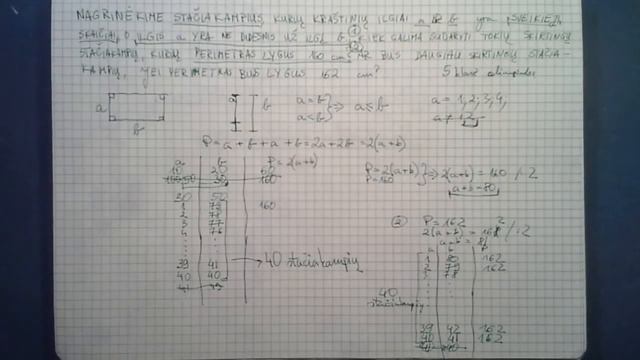 NAGRINĖKIME STAČIAKAMPIUS, KURIŲ KRAŠTINIŲ ILGIAI a IR b yra SVEIKIEJI
SKAIČIAI, O ILGIS a YRA NE DIDESNIS UŽ ILGĮ b. KIEK GALIMA SUDARYTI TOKIŲ SKIRTINGŲ
STAČIAKAMPIŲ, KURIŲ PERIMETRAS LYGUS 160 cm? AR BUS DAUGIAU SKIRTINGŲ STAČIA-
KAMPIŲ, JEI PERIMETRAS BUS LYGUS 162 cm?
5 klasė olimpiados
a
b
a b
a = b
a < b } ⇒ a ≤ b
a = 1, 2, 3, 4,
P = a + b + a + b = 2a + 2b = 2(a+b)
a b P = 2(a+b)
10 20
160
P = 2(a+b)
P = 160 } ⇒ 2(a+b) = 160 / :2
a+b = 80
1 79 160
2 78
3 77
4 76
39 41
40 40
→ 40 stačiakampių
② P = 162
2(a+b) = 162 / :2
a+b = 81
a b P
1 80 162
2 79 162
3 78
40
stačiakampių
39 42 162
40 41 162